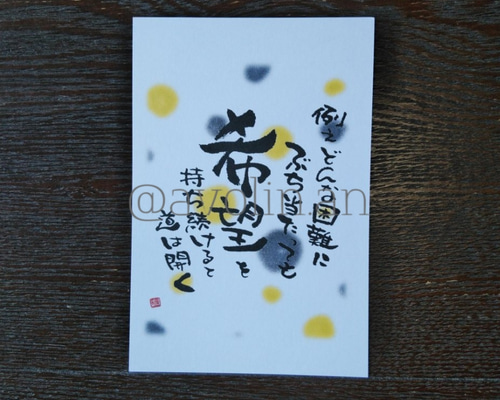 例えどんな困難に
ぶち当たっても
希望を
持ち続けると
道は開く